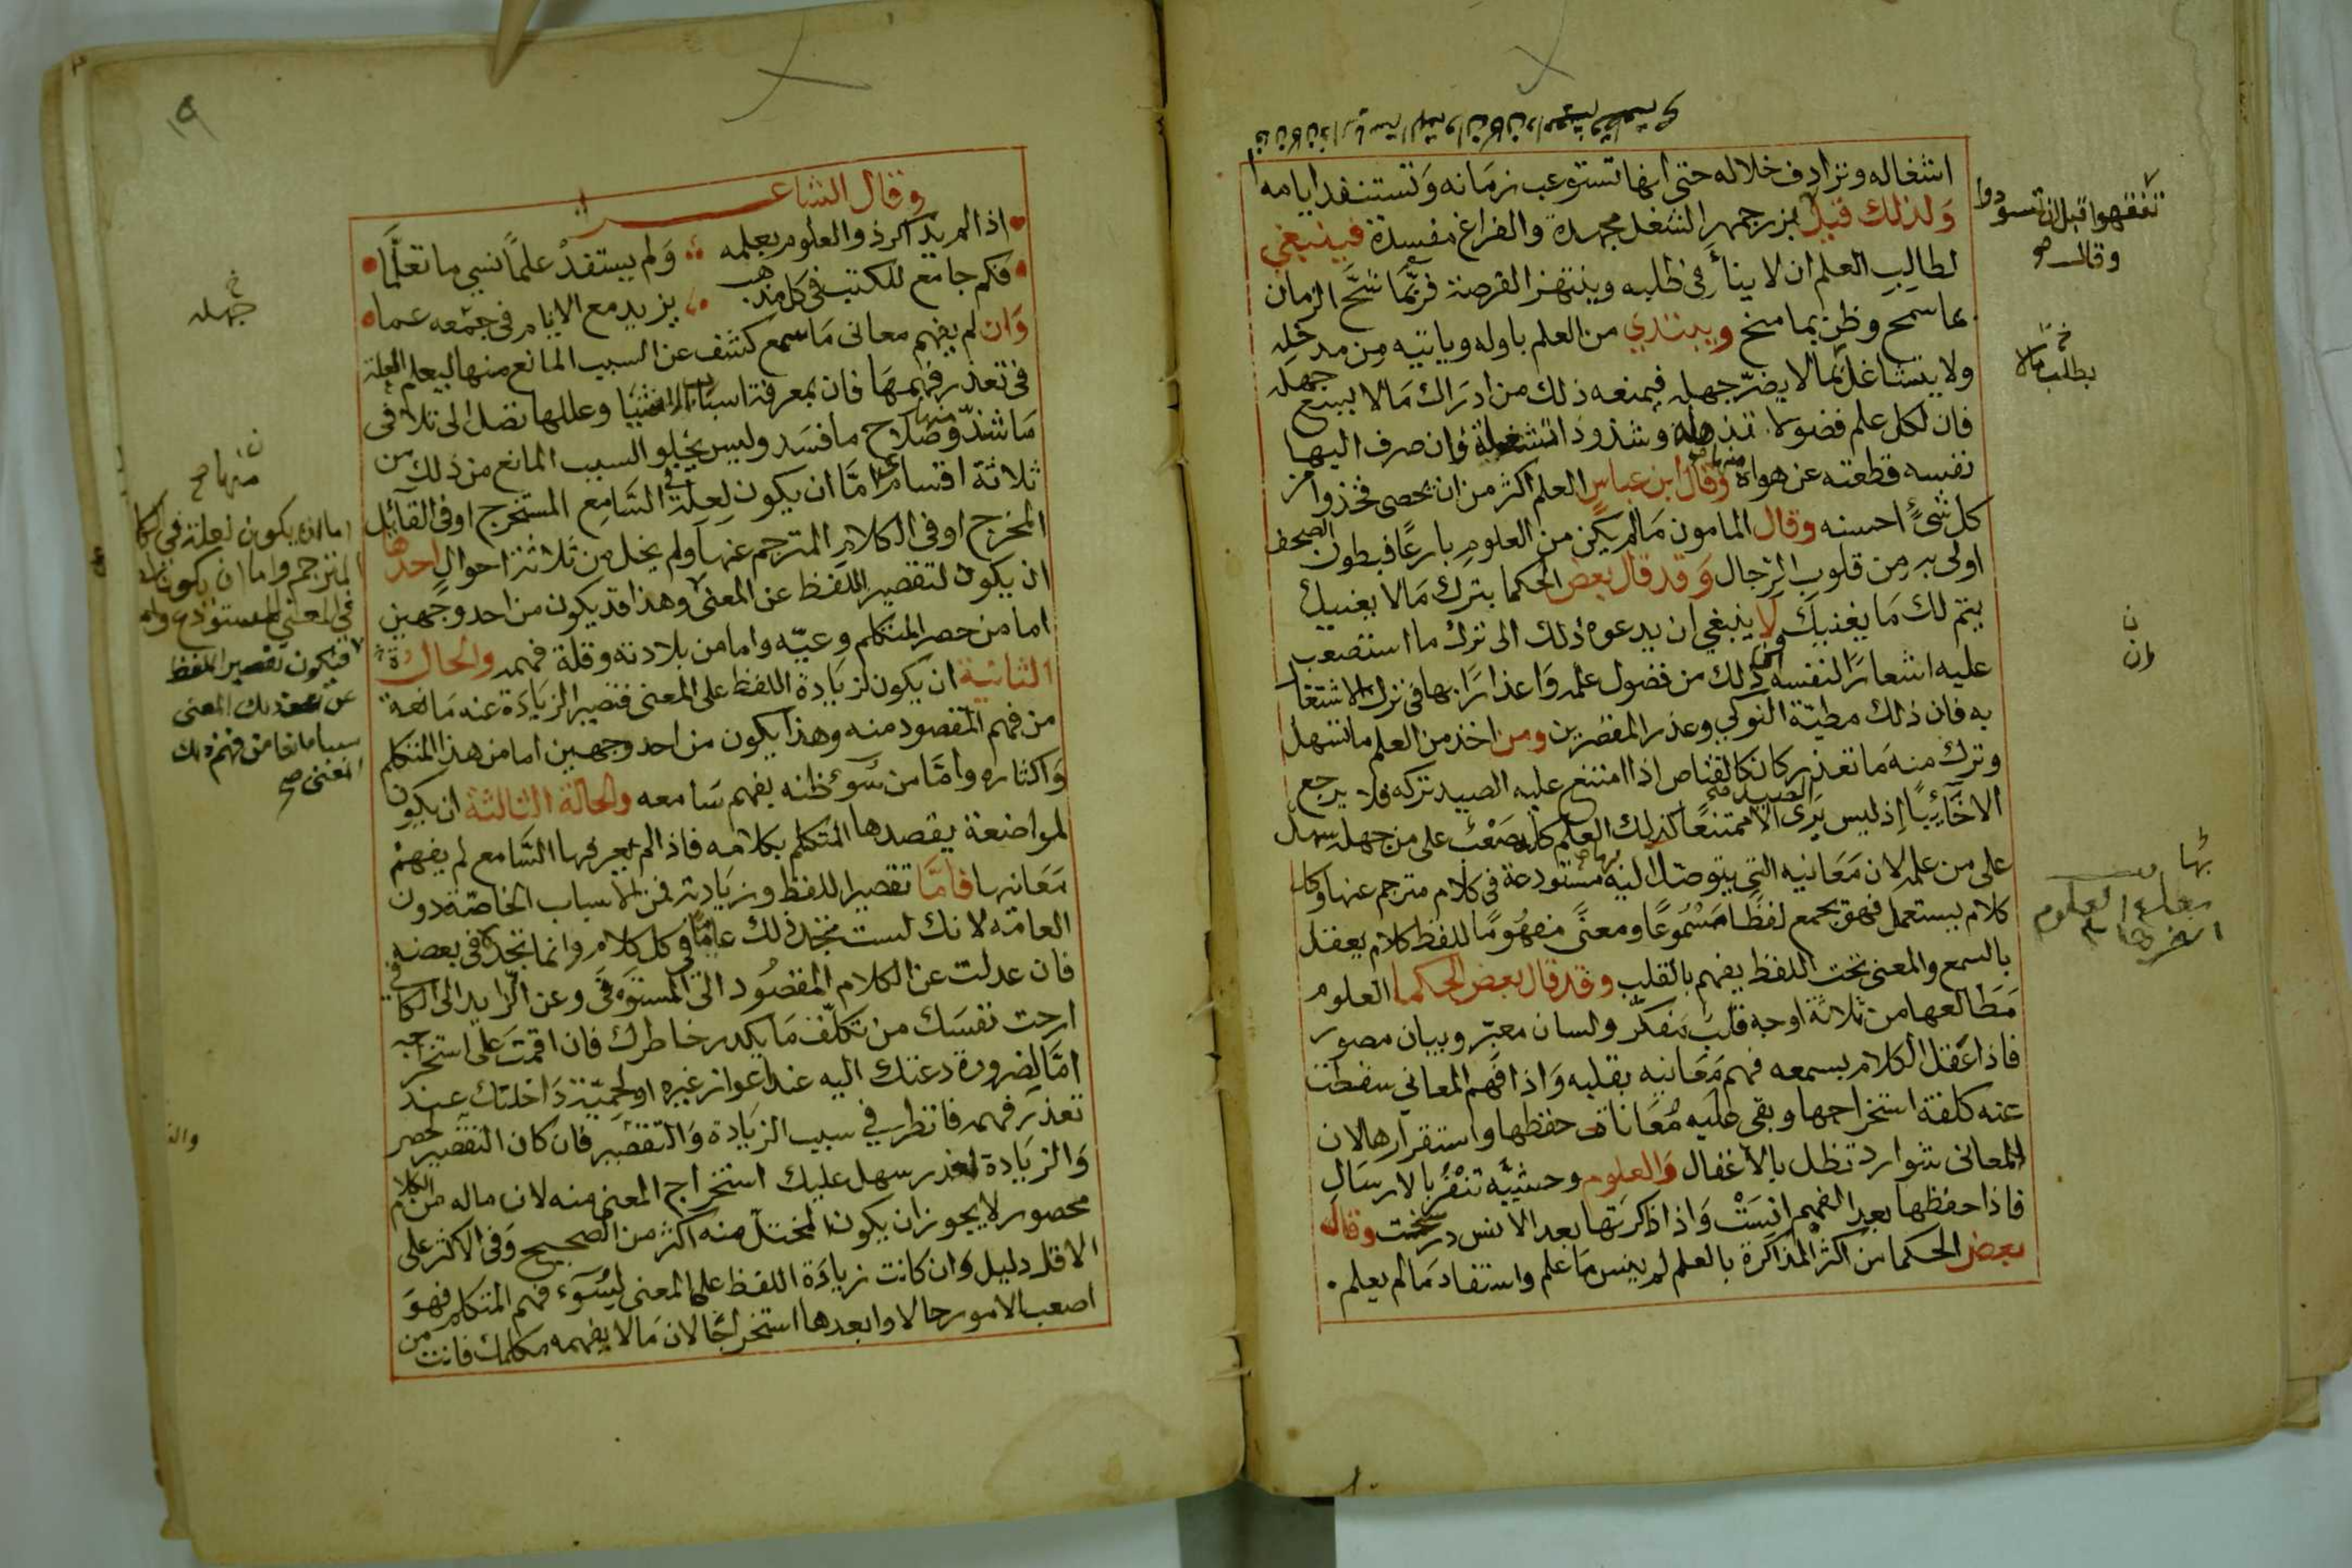 اشغاله وترادف خلاله حتى انها تستوعب زمانه وتستنفد ايامه
ولذلك قيل بزرجمهر الشغل مجهدة والفراغ مفسدة فينبغي
لطالب العلم ان لا ينأ في طلبه وينتهز الفرصة فربّما شحّ الزمان
بما سمح وظن بما منح ويبتدي من العلم باوله وياتيه من مدخله
ولا يتشاغل بما لا يضرّ جهله فيمنعه ذلك من ادراك ما لا يسع جهله
فان لكل علم فضولا تذهله وشذوذا تشغله وان صرف اليها
نفسه قطعته عن هواه وقال ابن عباس العلم اكثر من ان يحصى فخذوا من
كل شئ احسنه وقال المامون مالم يكن من العلوم بارعا فبطون الصحف
اولى به من قلوب الرجال وقد قال بعض الحكما بترك مالا يعنيك
يتم لك ما يغنيك ولا ينبغي ان يدعوه ذلك الى ترك ما استصعب
عليه اشعارا لنفسه ان ذلك من فضول علمه واعذارا بها في ترك الاشتغال
به فان ذلك مطيّة النوكي وعذر المقصرين ومن اخذ من العلم ما تسهل
وترك منه ما تعذر كان كالقناص اذا امتنع عليه الصيد تركه فلا يرجع
الا خائبا إذ ليس يرى الصيد الا ممتنعا كذلك العلم كله صعب على من جهله سهل
على من علمه لان معانيه التي يتوصل اليه مستودعة في كلام مترجم عنها وكل
كلام يستعمل فهو يجمع لفظا مسموعا ومعنى مفهوما للفظ كلام يعقل
بالسمع والمعنى تحت اللفظ يفهم بالقلب وقد قال بعض الحكما العلوم
مطالعها من ثلاثة اوجه قلب متفكّر ولسان معبّر وبيان مصور
فاذا عقل الكلام بسمعه فهم معانيه بقلبه واذا فهم المعاني سقطت
عنه كلفة استخراجها وبقى عليه معاناة حفظها واستقرارها لان
المعاني شوارد تظل بالاغفال والعلوم وحشيّة تنفر بالارسال
فاذا حفظها بعد الفهم انست واذا ذكرتها بعد الانس رسخت وقال
بعض الحكما من اكثر المذاكرة بالعلم لم ينس ما علم واستفاد مالم يعلم
تفقهوا قبل ان تسودوا
وقال
وان
وقال الشاعر
اذا لم يذاكر ذو العلوم بعلمه ولم يستفد علما نسي ما تعلّما
فكم جامع للكتب في كل مذهب يزيد مع الايام في جمعه عما
وان لم يفهم معاني ما سمع كشف عن السبب المانع منها ليعلم العلة
في تعذر فهمها فان بمعرفة اسباب الاشيا وعللها تصل الى تلافي
ما شذّ وصلاح ما فسد وليس يخلو السبب المانع من ذلك من
ثلاثة اقسام امّا ان يكون لعلة في السّامع المستخرج او في القائل
المخرج او في الكلام المترجم عنها ولم يخل من ثلاثة احوال احدها
ان يكون لتقصير اللفظ عن المعنى وهذا قد يكون من احد وجهين
اما من حصر المتكلم وعيّه واما من بلادته وقلة فهمه والحال
الثانية ان يكون لزيادة اللفظ على المعنى فتصير الزيادة عنه مانعة
من فهم المقصود منه وهذا يكون من احد وجهين اما من هذا المتكلم
واكثاره وامّا من سوء ظنه بفهم سامعه والحالة الثالثة ان يكون
لمواضعة يقصدها المتكلم بكلامه فاذا لم يعرفها السّامع لم يفهم
معانيها فامّا تقصير اللفظ وزيادته فمن الاسباب الخاصّة دون
العامة لانك لست تجد ذلك عامّا في كل كلام وانما تجده في بعضه
فان عدلت عن الكلام المقصود الى المستوفى وعن الزايد الى الكافي
ارحت نفسك من تكلّف ما يكدر خاطرك فان اقمت على استخراجه
امّا لضرورة دعتك اليه عند اعواز غيره او لحميّة داخلتك عند
تعذر فهمه فانظر في سبب الزيادة والتقصير فان كان التقصير لحصر
والزيادة لهذر سهل عليك استخراج المعنى منه لان ماله من الكلام
محصور لا يجوز ان يكون المختل منه اكثر من الصحيح وفي الاكثر على
الاقل دليل وان كانت زيادة اللفظ على المعنى لسوء فهم المتكلم فهو
اصعب الامور حالا وابعدها استخراجا لان مالا يفهمه مكلمك فانت من
جهله
منها صح
اما ان يكون لعلة في الكلام
المترجم واما ان يكون
في المعنى المستودع
فيكون تقصير اللفظ
عن ذلك المعنى
سببا مانعا من فهم ذلك
المعنى صح